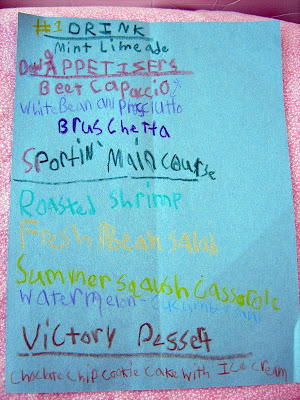 #1 DRINK
Mint Limeade
APPETISERS
Beet Capaccio
White Bean and Prosciutto
Bruschetta
Sportin' Main course
Roasted shrimp
Fresh Bean salad
Summer sqaush Casserole
Watermelon cucumber
Victory Dessert
Choclate chip cookie cake with Ice cream